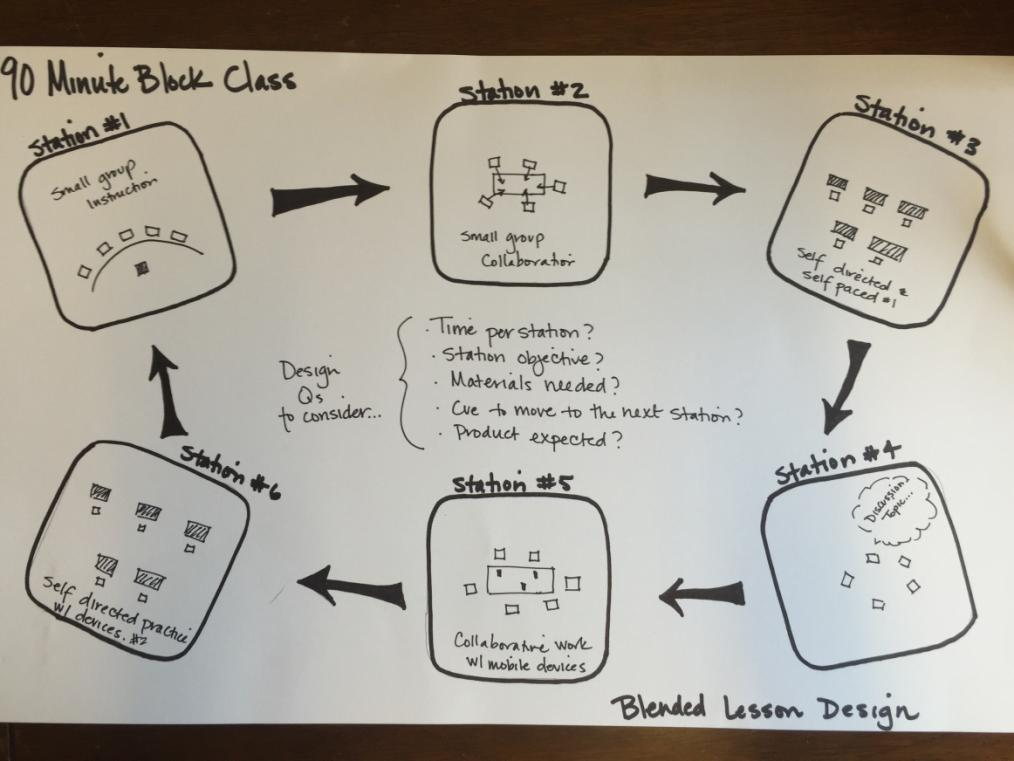 90 Minute Block Class
Station #1
Small group
Instruction
Station #2
Small group
Collaboration
Station #3
Self directed &
self paced #1
Design
Qs
to consider...
· Time per station?
· Station objective?
· Materials needed?
· Cue to move to the next station?
· Product expected?
Station #4
Discussion
Topic...
Station #5
Collaborative work
w/ mobile devices
Station #6
Self directed practice
w/ devices. #2
Blended Lesson Design